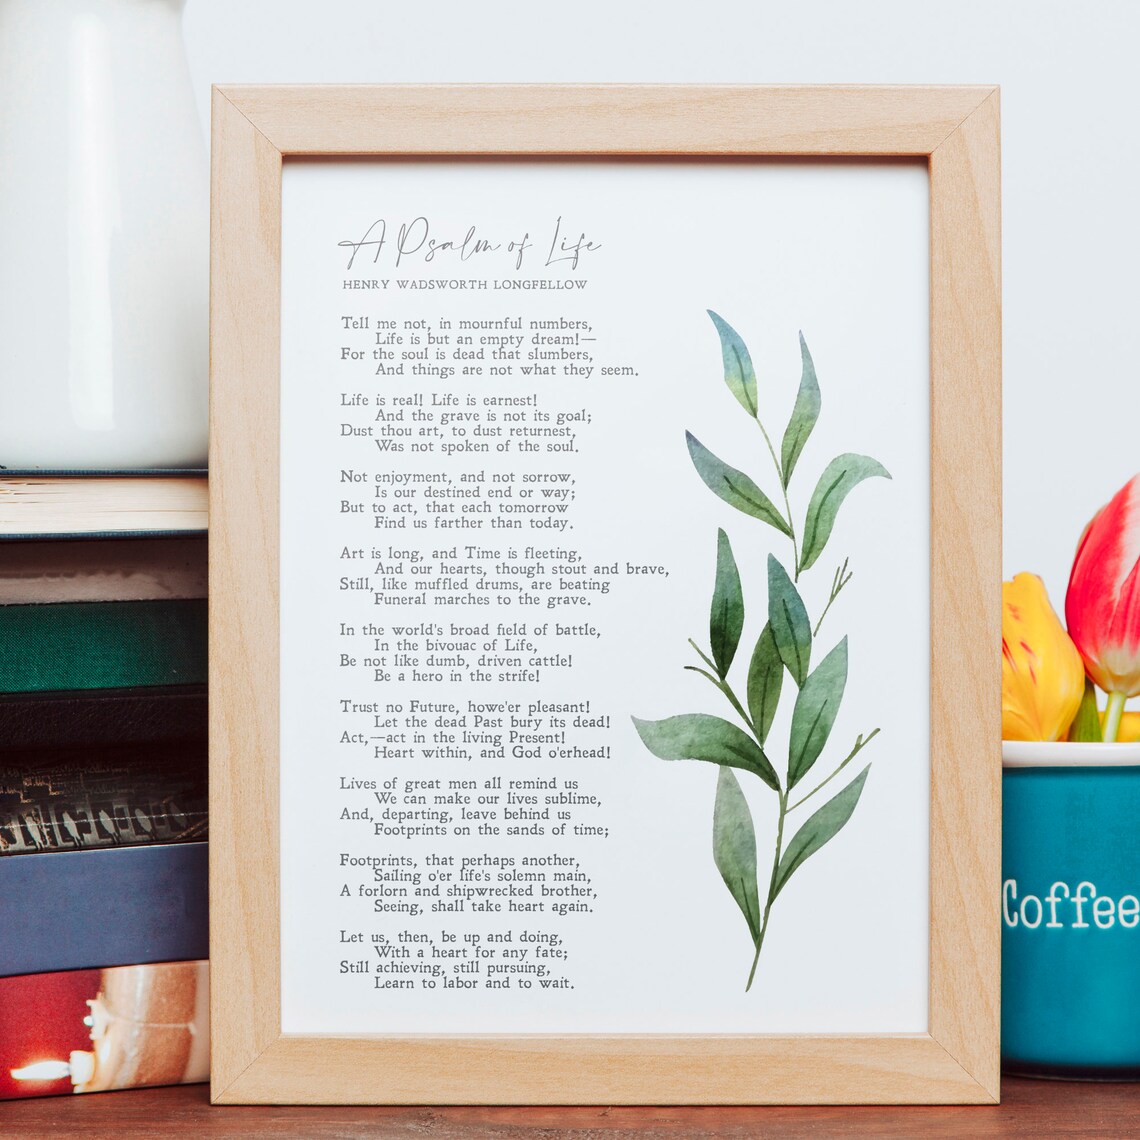 A Psalm of Life
HENRY WADSWORTH LONGFELLOW
Tell me not, in mournful numbers,
Life is but an empty dream!—
For the soul is dead that slumbers,
And things are not what they seem.
Life is real! Life is earnest!
And the grave is not its goal;
Dust thou art, to dust returnest,
Was not spoken of the soul.
Not enjoyment, and not sorrow,
Is our destined end or way;
But to act, that each tomorrow
Find us farther than today.
Art is long, and Time is fleeting,
And our hearts, though stout and brave,
Still, like muffled drums, are beating
Funeral marches to the grave.
In the world's broad field of battle,
In the bivouac of Life,
Be not like dumb, driven cattle!
Be a hero in the strife!
Trust no Future, howe'er pleasant!
Let the dead Past bury its dead!
Act,—act in the living Present!
Heart within, and God o'erhead!
Lives of great men all remind us
We can make our lives sublime,
And, departing, leave behind us
Footprints on the sands of time;
Footprints, that perhaps another,
Sailing o'er life's solemn main,
A forlorn and shipwrecked brother,
Seeing, shall take heart again.
Let us, then, be up and doing,
With a heart for any fate;
Still achieving, still pursuing,
Learn to labor and to wait.
Coffee